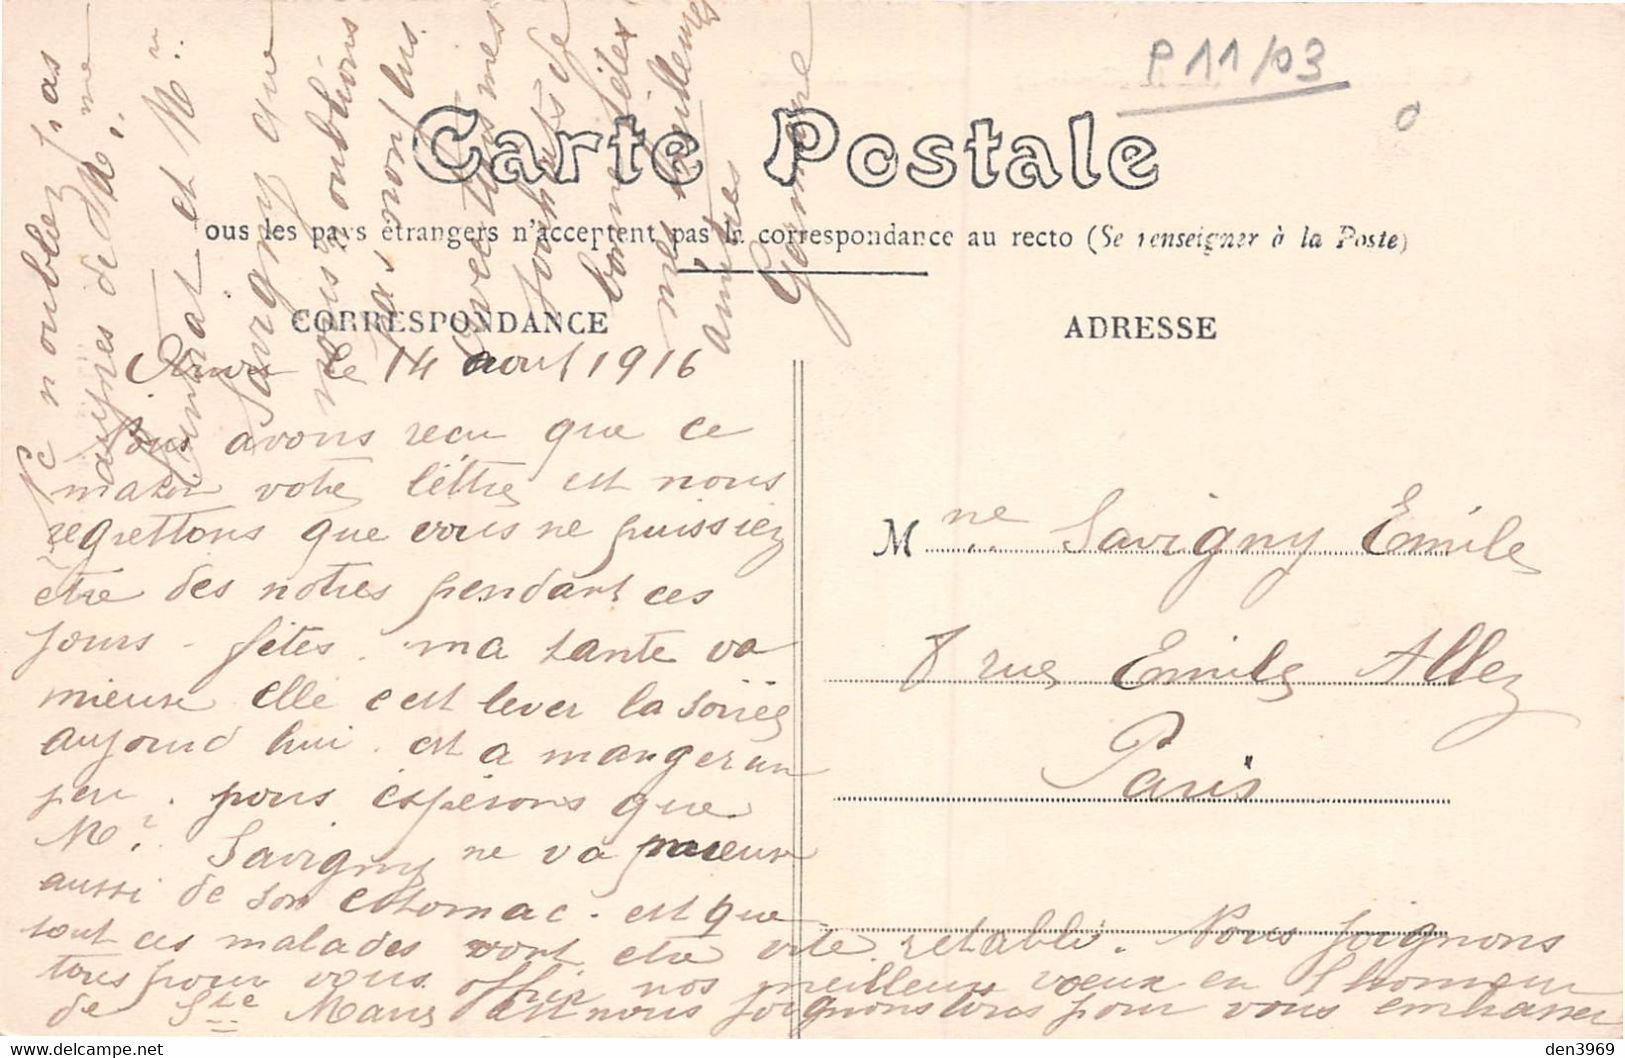 P11/03
Carte Postale
ous les pays étrangers n'acceptent pas la correspondance au recto (Se renseigner à la Poste)
CORRESPONDANCE
ADRESSE
le 14 aout 1916
Nous avons recu que ce
matin votre lettre est nous
regrettons que vous ne puissiez
etre des notres pendant ces
jours - fêtes. ma tante va
mieux elle c est lever la soiree
aujourd hui. est a manger un
peu. nous espérons que
Mr. Savigny ne va mieux
aussi de son estomac. est que
tout ces malades vont etre vite retabli. Nous joignons
tous pour vous offrir nos meilleurs voeux en l honneur
de Ste Marie est nous joignons tous pour vous embrasser
Mme Savigny Emile
8 rue Emile Allez
Paris
Ne noublez pas
aupres de Me
et Mr
Savigny que
nous oublions
pas non plus
avec tous mes
souhaits de
bonne fêtes
mes meilleures
amities
Germaine
den3969